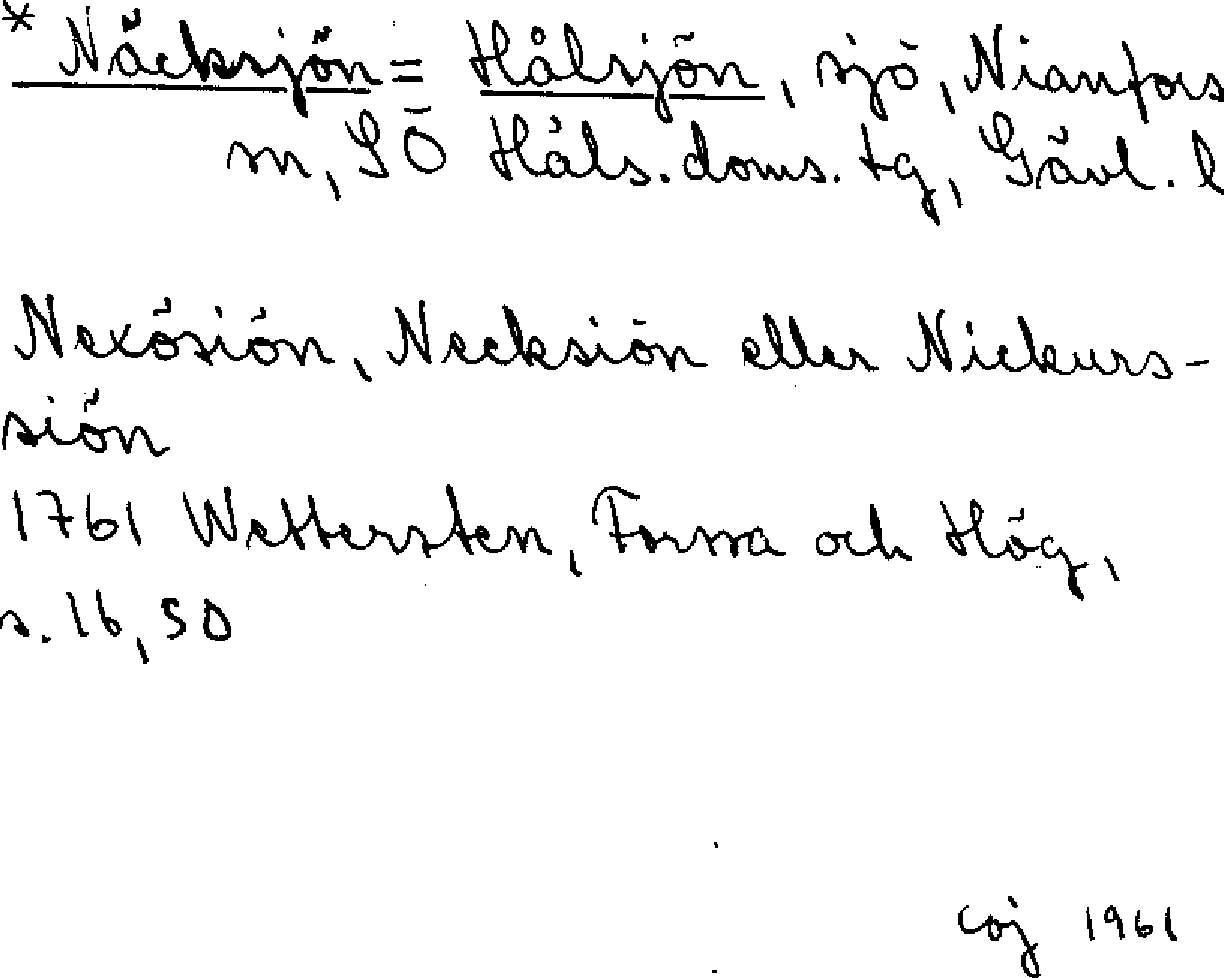 * Näcksjön = Hålsjön, sjö, Nianfors
sn, SÖ Häls. doms. tg, Gävl. l
Nexösiön, Necksiön eller Nickurs-
siön
1761 Wettersten, Forssa och Hög,
s. 16, 50
coj 1961